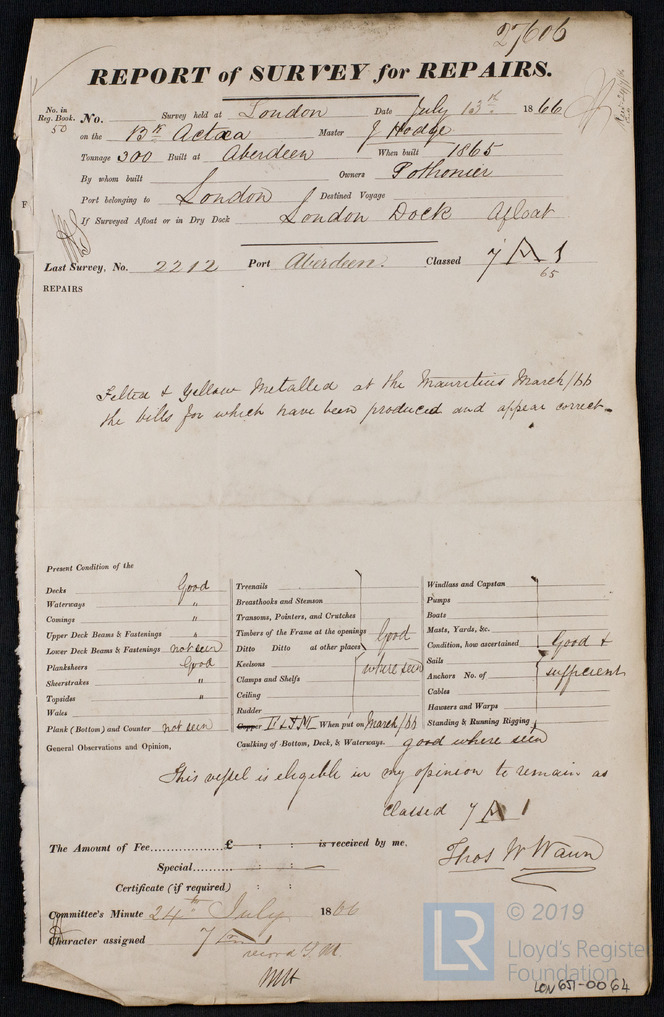 27606
REPORT of SURVEY for REPAIRS.
No. in Reg. Book. 50 No. Survey held at London Date July 13th 1866
on the Bk Actæa Master J Hodge
Tonnage 300 Built at Aberdeen When built 1865
By whom built Owners Pothonier
Port belonging to London Destined Voyage
If Surveyed Afloat or in Dry Dock London Dock Afloat
Last Survey, No. 2212 Port Aberdeen. Classed 7 A 1
65
REPAIRS
Felted & Yellow Metalled at the Mauritius March/66
the bills for which have been produced and appear correct.
Present Condition of the
Decks Good
Waterways "
Comings "
Upper Deck Beams & Fastenings "
Lower Deck Beams & Fastenings not seen
Planksheers Good
Sheerstrakes "
Topsides "
Wales
Plank (Bottom) and Counter not seen
Treenails
Breasthooks and Stemson
Transoms, Pointers, and Crutches
Timbers of the Frame at the openings Good
Ditto Ditto at other places
Keelsons where seen
Clamps and Shelfs
Ceiling
Rudder
Copper F & Y M When put on March/66
Caulking of Bottom, Deck, & Waterways. good where seen
Windlass and Capstan
Pumps
Boats
Masts, Yards, &c.
Condition, how ascertained Good &
Sails
Anchors No. of sufficient
Cables
Hawsers and Warps
Standing & Running Rigging
General Observations and Opinion,
This vessel is eligible in my opinion to remain as
Classed 7 A 1
The Amount of Fee £ : : is received by me,
Special : :
Certificate (if required) : :
Thos W Wawn
Committee's Minute 24th July 1866
Character assigned 7 A 1
record Y.M.
MH
LR © 2019
Lloyd's Register
Foundation
LON651-0064